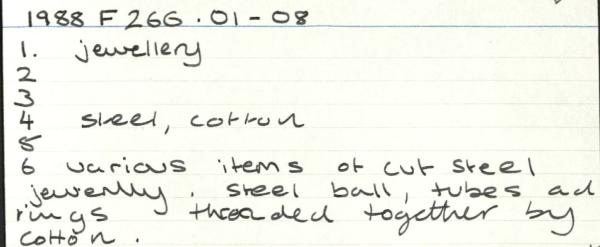 1988 F 266 . 01 - 08
1. jewellery
2
3
4 steel, cotton
5
6 various items of cut steel
jewerlly . steel ball, tubes ad
rings threaded together by
cotton .